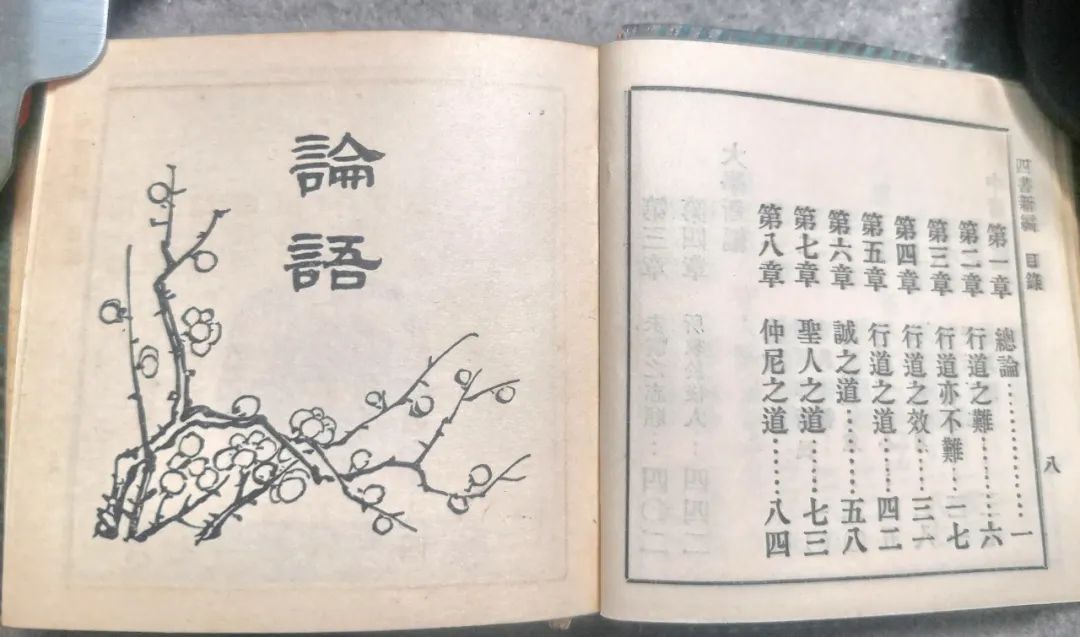 四書新編 目錄 八
第一章 總論............一
第二章 行道之難......六
第三章 行道亦不難...一七
第四章 行道之效......
第五章 行道之道......四二
第六章 誠之道......五八
第七章 聖人之道...七三
第八章 仲尼之道...八四
論語